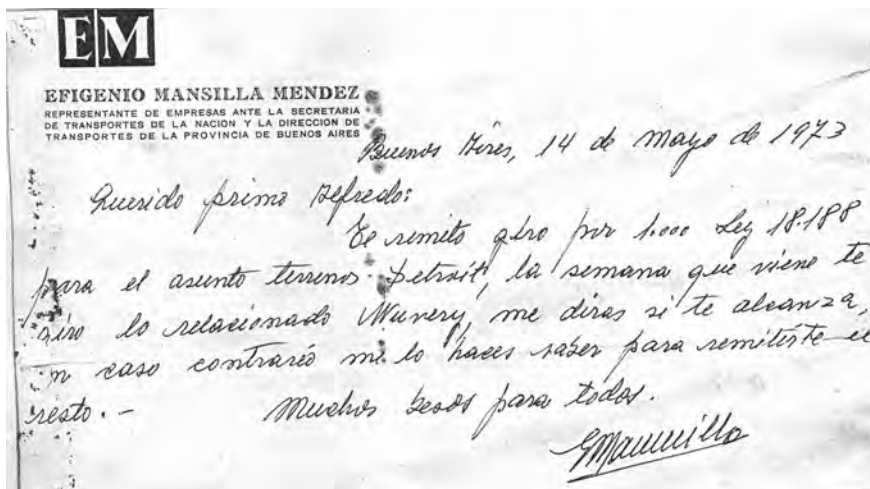 EM
EFIGENIO MANSILLA MENDEZ
REPRESENTANTE DE EMPRESAS ANTE LA SECRETARIA
DE TRANSPORTES DE LA NACION Y LA DIRECCION DE
TRANSPORTES DE LA PROVINCIA DE BUENOS AIRES
Buenos Aires, 14 de Mayo de 1973
Querido primo Alfredo:
Te remito giro por 1.000 Ley 18.188
para el asunto terrenos Petroit, la semana que viene te
giro lo relacionado me diras si te alcanza,
en caso contrario me lo haces saber para remitirte el
resto.- Muchos besos para todos.
EMansilla